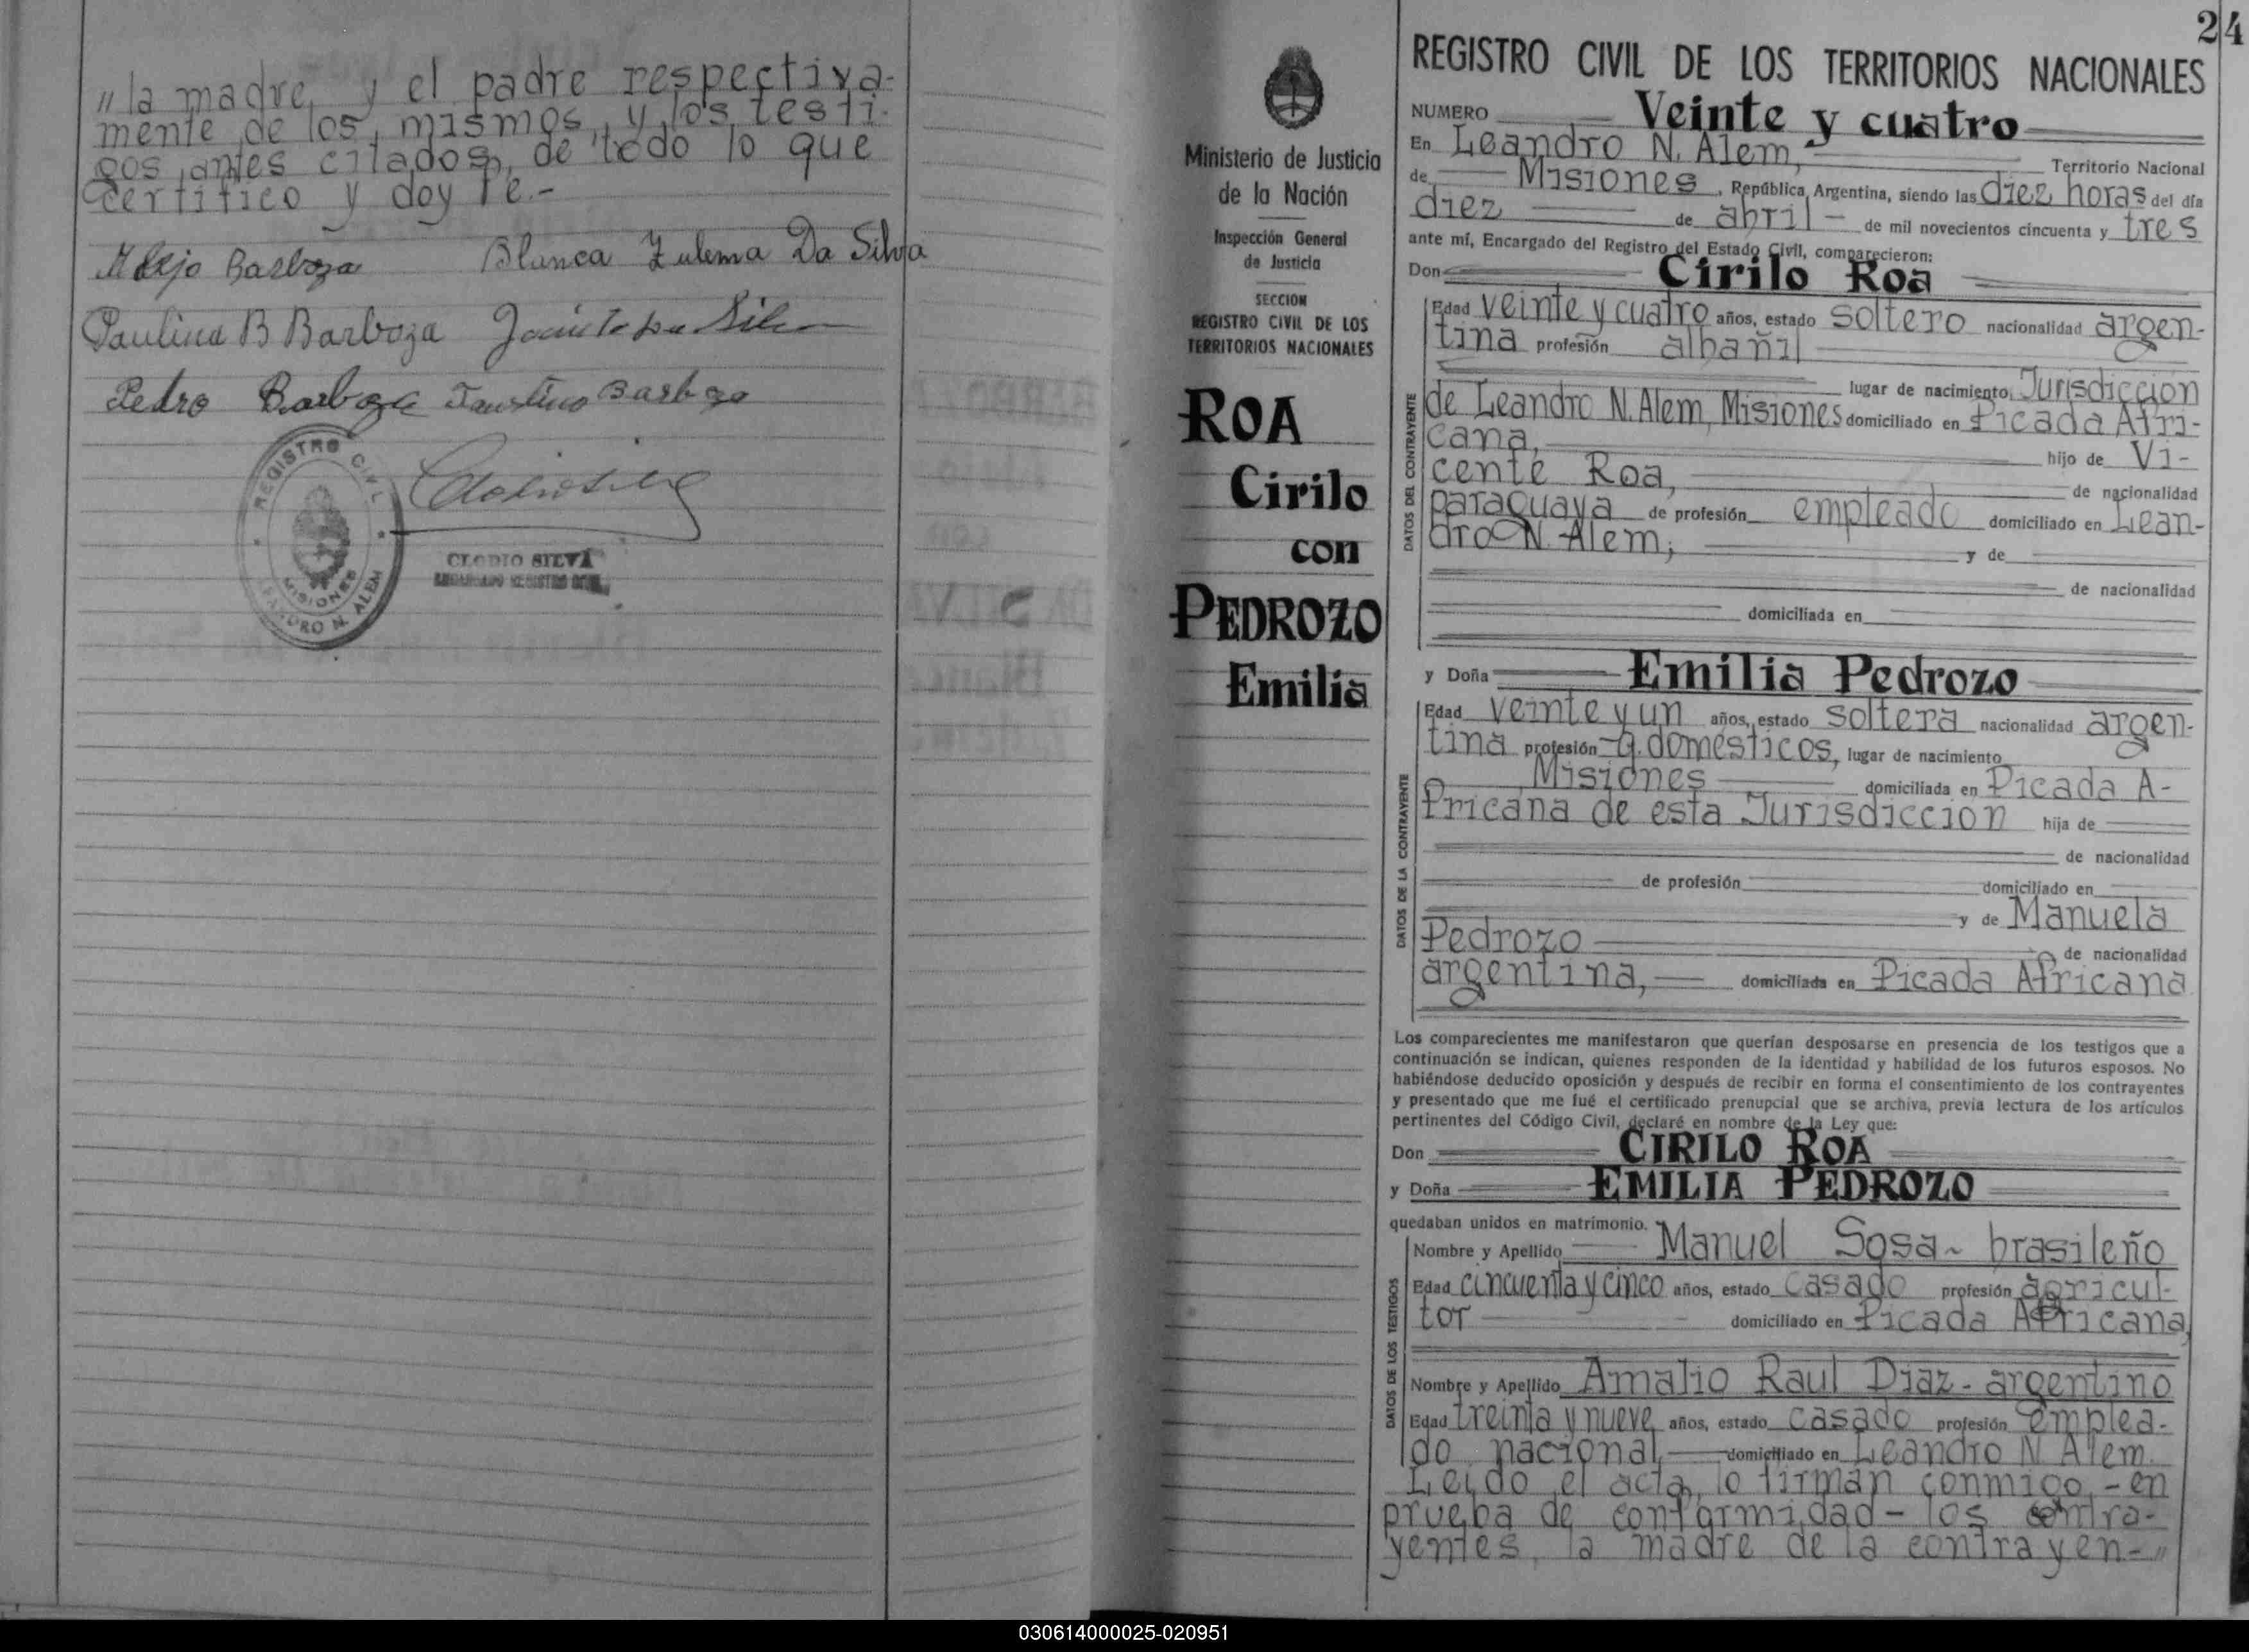 "la madre, y el padre respectiva-
mente de los mismos, y los testi-
gos antes citados, de todo lo que
certifico y doy fe.-
Alejo Barboza Blanca Zulema Da Silva
Paulina B Barboza Jacinto Da Silva
Pedro Barboza Faustino Barboza
REGISTRO CIVIL
MISIONES
LEANDRO N. ALEM
CLODIO SILVA
ENCARGADO REGISTRO CIVIL
24
Ministerio de Justicia
de la Nación
Inspección General
de Justicia
SECCION
REGISTRO CIVIL DE LOS
TERRITORIOS NACIONALES
ROA
Cirilo
con
PEDROZO
Emilia
REGISTRO CIVIL DE LOS TERRITORIOS NACIONALES
NUMERO Veinte y cuatro
En Leandro N. Alem, Territorio Nacional
de Misiones, República Argentina, siendo las diez horas del día
diez de abril - de mil novecientos cincuenta y tres
ante mí, Encargado del Registro del Estado Civil, comparecieron:
Don Cirilo Roa
DATOS DEL CONTRAYENTE
Edad veinte y cuatro años, estado soltero nacionalidad argen-
tina profesión albañil
lugar de nacimiento, Jurisdicción
de Leandro N. Alem, Misiones domiciliado en Picada Afri-
cana, hijo de Vi-
cente Roa, de nacionalidad
paraguaya de profesión empleado domiciliado en Lean-
dro N. Alem; y de
de nacionalidad
domiciliada en
y Doña Emilia Pedrozo
DATOS DE LA CONTRAYENTE
Edad veinte y un años, estado soltera nacionalidad argen-
tina profesión q. domésticos, lugar de nacimiento
Misiones domiciliada en Picada A-
fricana de esta Jurisdicción hija de
de nacionalidad
de profesión domiciliado en
y de Manuela
Pedrozo de nacionalidad
argentina, domiciliada en Picada Africana
Los comparecientes me manifestaron que querían desposarse en presencia de los testigos que a
continuación se indican, quienes responden de la identidad y habilidad de los futuros esposos. No
habiéndose deducido oposición y después de recibir en forma el consentimiento de los contrayentes
y presentado que me fué el certificado prenupcial que se archiva, previa lectura de los artículos
pertinentes del Código Civil, declaré en nombre de la Ley que:
Don CIRILO ROA
y Doña EMILIA PEDROZO
quedaban unidos en matrimonio.
DATOS DE LOS TESTIGOS
Nombre y Apellido Manuel Sosa - brasileño
Edad cincuenta y cinco años, estado casado profesión agricul-
tor domiciliado en Picada Africana,
Nombre y Apellido Amalio Raul Diaz - argentino
Edad treinta y nueve años, estado casado profesión emplea-
do nacional, domiciliado en Leandro N. Alem.
Leído el acta, lo firman conmigo, - en
prueba de conformidad - los contra-
yentes, la madre de la contrayen-"
030614000025-020951